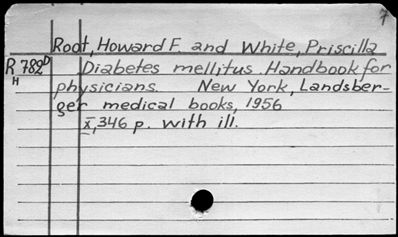 7
Root, Howard F. and White, Priscilla
R 782D Diabetes mellitus. Handbook for
H physicians. New York, Landsber-
ger medical books, 1956
X,346 p. with ill.